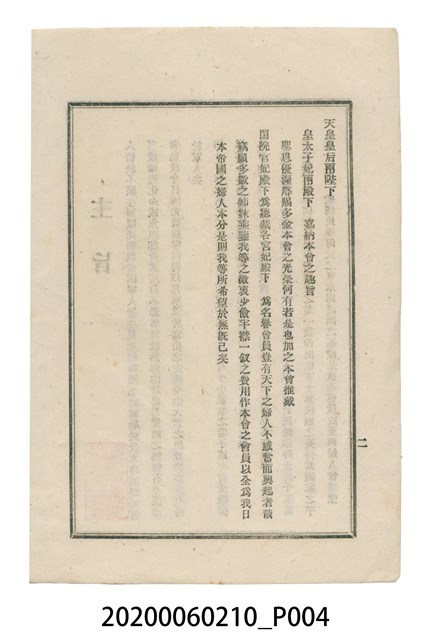 天皇皇后兩陛下
皇太子妃兩殿下 嘉納本會之趣旨
聖恩優渥辱賜多金本會之光榮何有若是也加之本會推戴
閑院宮妃殿下爲總裁各宮妃殿下 爲名譽會員豈有天下之婦人不感奮而興起者哉
竊願多數之姉妹亮鑒我等之微衷少儉半襟一釵之費用作本會之會員以全爲我日
本帝國之婦人本分是則我等所希望於無旣已矣
二
主旨
20200060210_P004